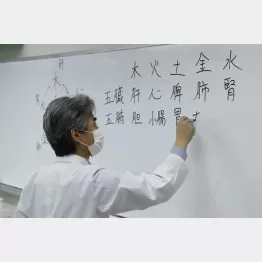 木 火 土 金 水
五臓 肝 心 脾 肺 腎
五腑 胆 小腸 胃
肝